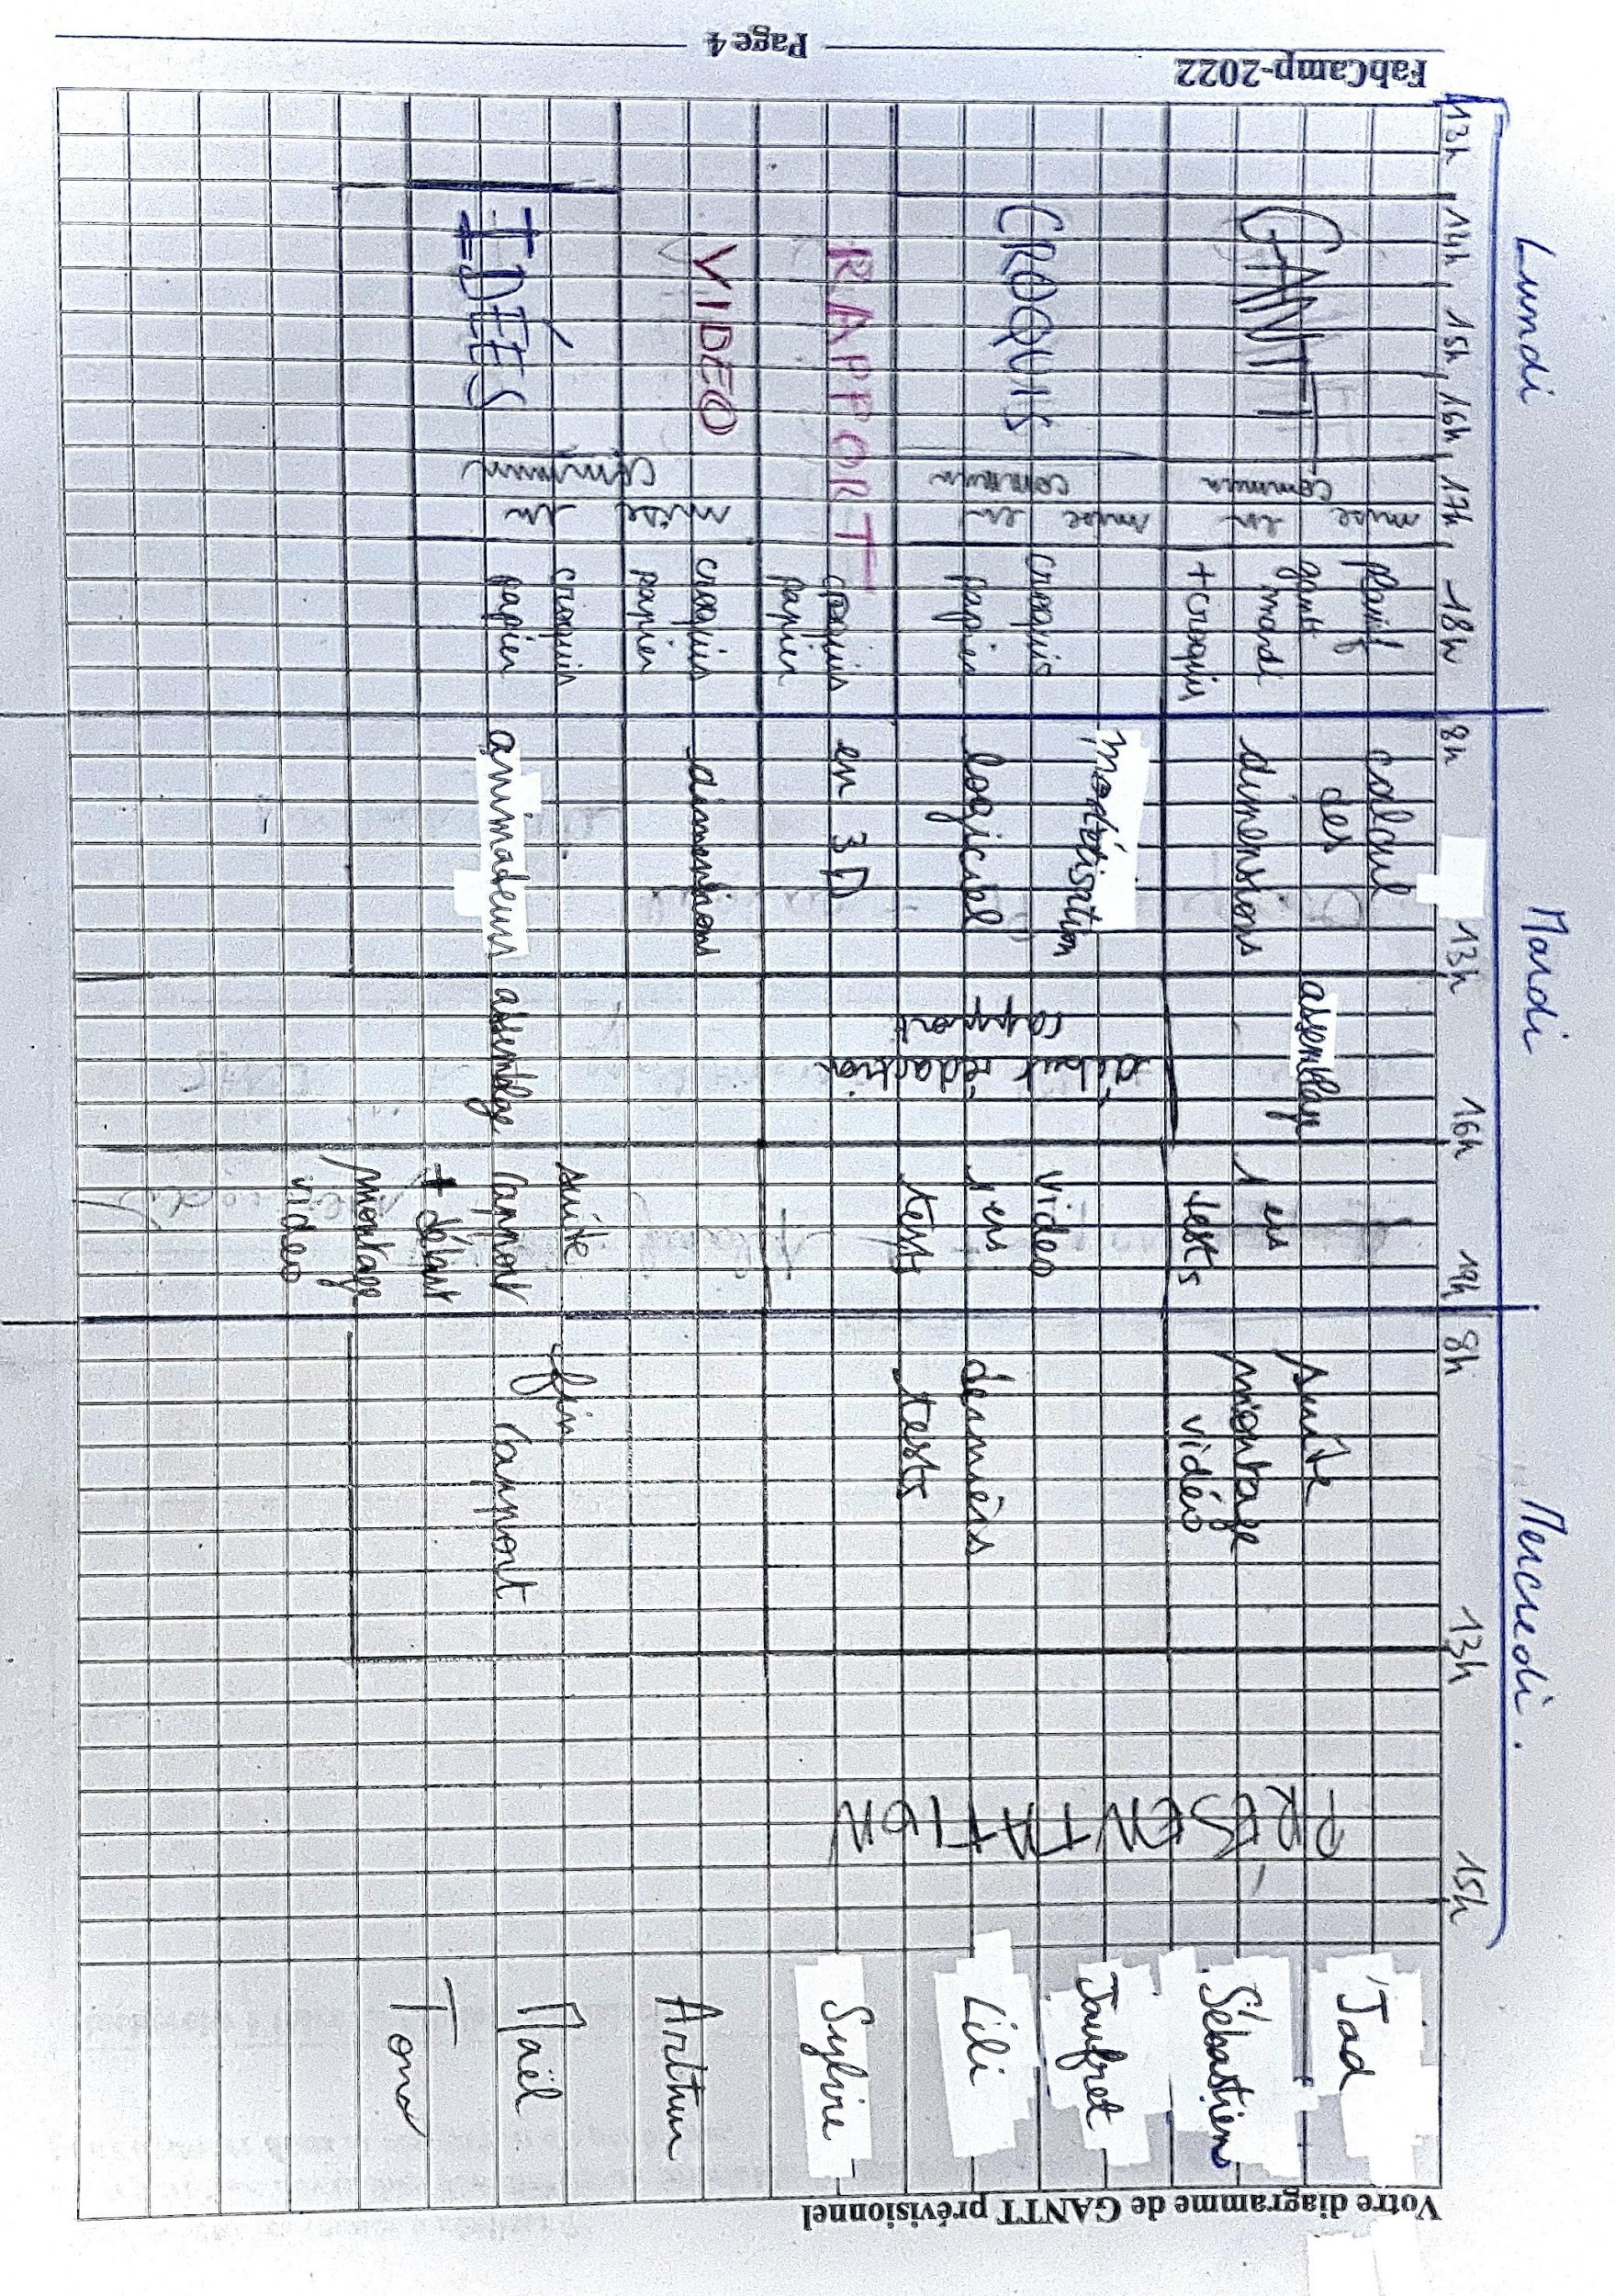 FabCamp-2022
Page 4
Votre diagramme de GANTT prévisionnel
Lundi
Mardi
Mercredi.
13h 14h, 15h, 16h, 17h, 18h
8h 13h 16h 19h
8h 13h 15h
GANTT
CROQUIS
RAPPORT
VIDEO
IDÉES
mise en
commun
mise en
commun
mise en
commun
planif
gantt
mardi
+ croquis
croquis
papier
croquis
papier
croquis
papier
croquis
papier
calcul
des
dimensions
modélisation
logiciel
en 3D
dimensions
animadeurs
assemblage
début rédaction
rapport
assemblage
1 ers
tests
video
1 ers
tests
suite
rapport
+ début
montage
video
suite
montage
vidéo
derniers
tests
fin
rapport
PRÉSENTATION
Jad
Sébastien
Jaufret
Lili
Sylvie
Arthur
Maël
Tom